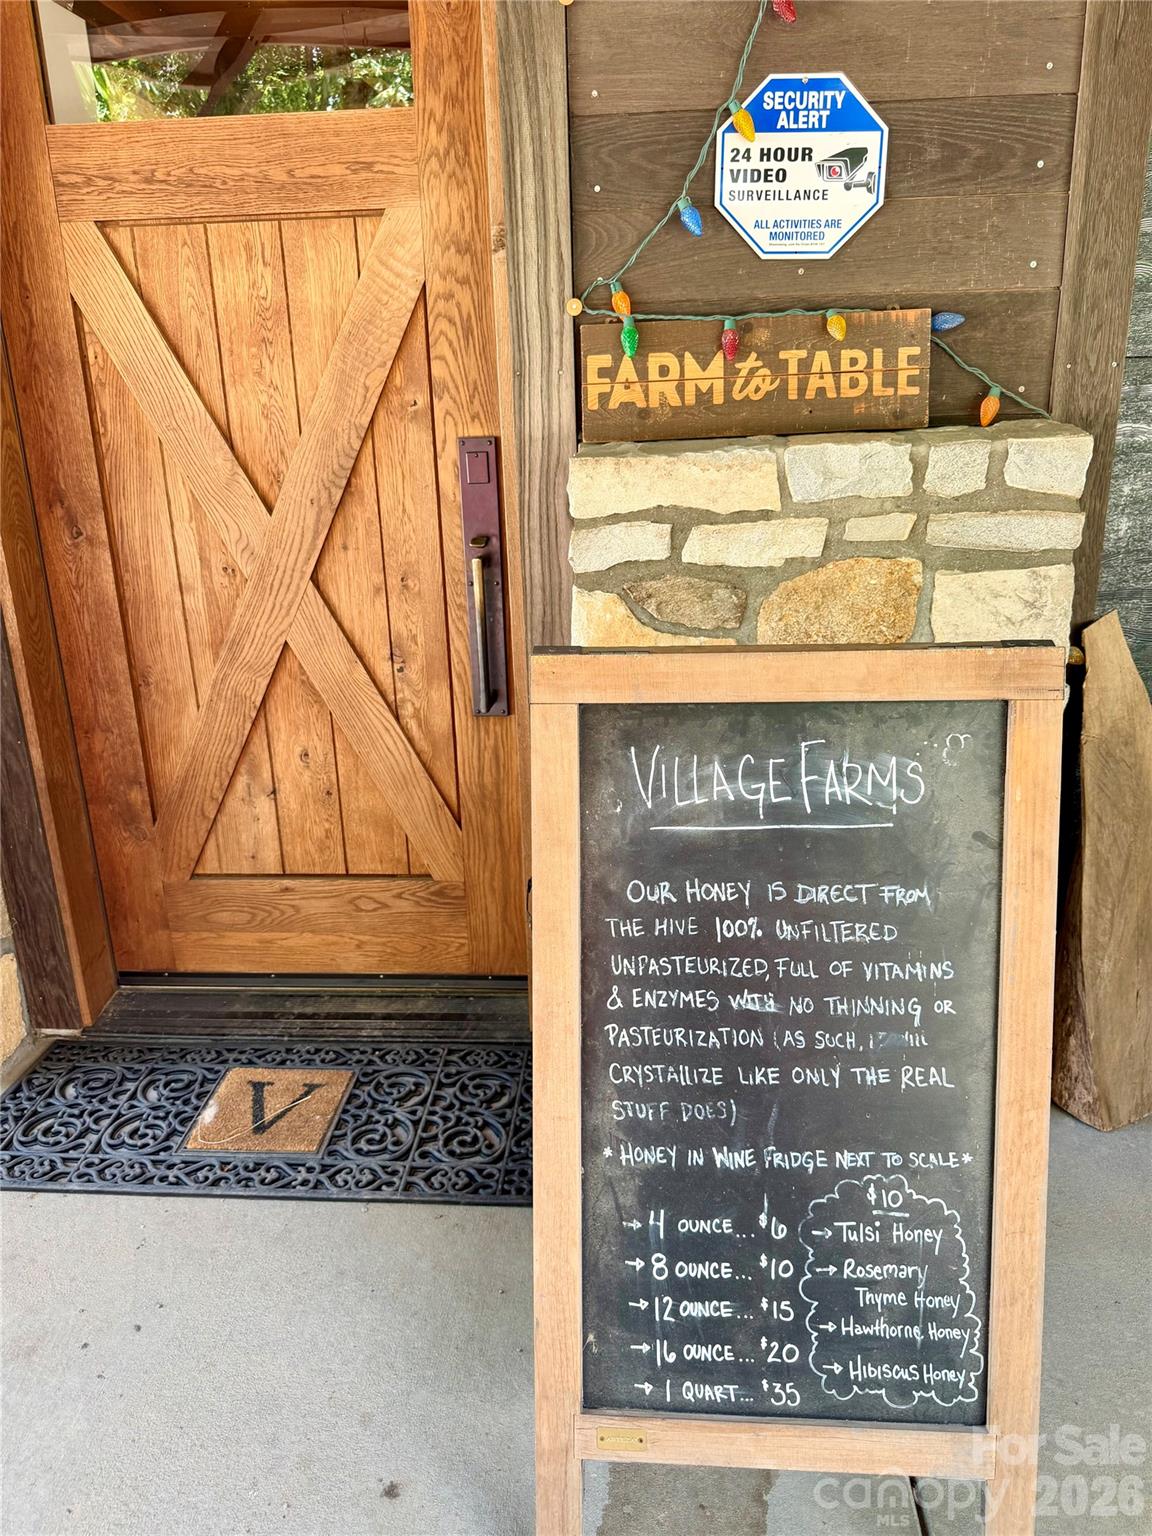 SECURITY
ALERT
24 HOUR
VIDEO
SURVEILLANCE
ALL ACTIVITIES ARE
MONITORED
FARM to TABLE
VILLAGE FARMS
OUR HONEY IS DIRECT FROM
THE HIVE 100% UNFILTERED
UNPASTEURIZED, FULL OF VITAMINS
& ENZYMES WITH NO THINNING OR
PASTEURIZATION (AS SUCH,
CRYSTALLIZE LIKE ONLY THE REAL
STUFF DOES)
* HONEY IN WINE FRIDGE NEXT TO SCALE *
→ 4 OUNCE... $6
→ 8 OUNCE... $10
→ 12 OUNCE... $15
→ 16 OUNCE... $20
→ 1 QUART... $35
$10
→ Tulsi Honey
→ Rosemary
Thyme Honey
→ Hawthorne Honey
→ Hibiscus Honey
V
For Sale
canopy 2026
MLS